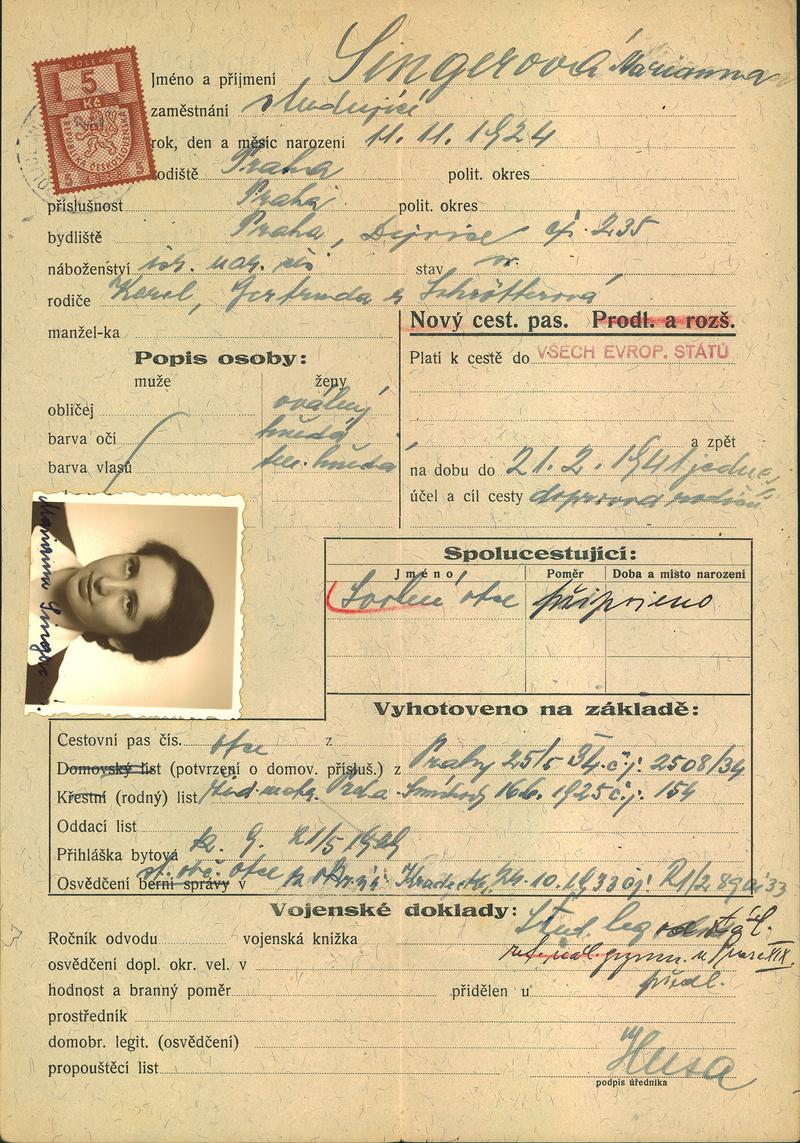 KOLEK
5
Kč
REPUBLIKA ČESKOSLOVENSKÁ
5 5
Jméno a příjmení Singerová Marianna
zaměstnání studující
rok, den a měsíc narození 11. 11. 1924
rodiště Praha polit. okres
příslušnost Praha polit. okres
bydliště Praha, Dejvice čp. 235
náboženství stav sv.
rodiče Karel, Gertruda r. Schrötterová
manžel-ka
Nový cest. pas. Prodl. a rozš.
Popis osoby:
Platí k cestě do VŠECH EVROP. STÁTŮ
muže ženy
obličej oválný
barva očí hnědá
barva vlasů tm. hnědá
a zpět
na dobu do 21. 2. 1941
účel a cíl cesty doprovod rodičů
Marianna Singer
Spolucestující:
Jméno Poměr Doba a místo narození
otce připojeno
Vyhotoveno na základě:
Cestovní pas čís. otce z
Domovský list (potvrzení o domov. přísluš.) z Prahy 25/5 34 čj. 2508/34
Křestní (rodný) list žid. matr. Praha Smíchov 16.6. 1925 čj. 154
Oddací list
Přihláška bytová 21/5
Osvědčení berní správy v st. obč. otce 24. 10. 1933 čj.
Vojenské doklady:
Stud. leg.
Ročník odvodu vojenská knížka
gymn. v Praze XIX.
osvědčení dopl. okr. vel. v
předl.
hodnost a branný poměr přidělen u
prostředník
domobr. legit. (osvědčení)
propouštěcí list
Husa
podpis úředníka